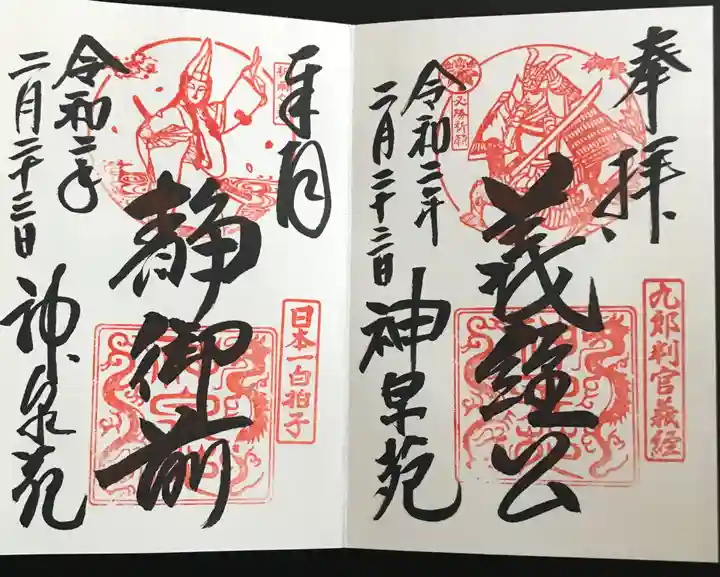 奉拝
九郎判官義経
義経公
令和二年
二月二十二日
神泉苑
奉拝
日本一白拍子
静御前
令和二年
二月二十三日
神泉苑